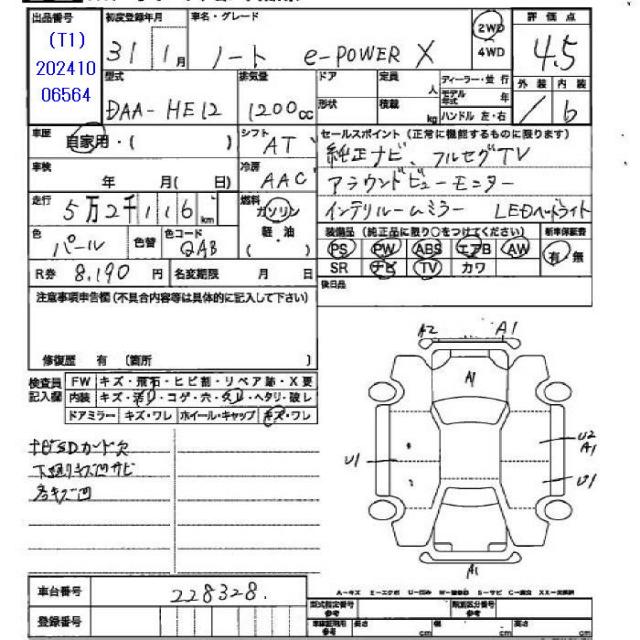 出品番号 初度登録年月 車名・グレード 評価点
(T1) 202410 06564
31年 1月 ノート e-POWER X 2WD 4WD 4.5
型式 排気量 ドア 定員 人 ディーラー・並行 外装 内装
モデル年式 年
DAA-HE12 1200cc 形状 積載 kg ハンドル 左・右 b
車歴 自家用・( ) シフト AT セールスポイント(正常に機能するものに限ります)
純正ナビ、フルセグTV
車検 年 月( 日) 冷房 AAC アラウンドビューモニター
走行 5万2千116km 燃料 ガソリン 軽・油 ( ) インテリルームミラー LEDヘッドライト
色 パール 色替 色コード QAB
装備品(純正品に限り○をつけてください) 新車保証書
PS PW ABS エアB AW 有・無
SR ナビ TV カワ
R券 8,190円 名変期限 月 日 後日品
注意事項申告欄(不具合内容等は具体的に記入して下さい)
修復歴 有(箇所 )
検査員記入欄 FW キズ・飛石・ヒビ割・リペア跡・X要
内装 キズ・汚れ・コゲ・穴・スレ・ヘタリ・破レ
ドアミラー キズ・ワレ ホイール・キャップ キズ・ワレ
ナビSDカード欠
下廻りキズ凹サビ
各キズ凹
A2 A1
A1
U2
A1
U1 U1
A1
A-キズ E-エクボ U-凹み W-補修跡 S-サビ C-腐食 XX-交換済
車台番号 228328
登録番号
型式指定番号 参考 類別区分番号 参考
車検証期間 参考 長さ cm 幅 cm 高さ cm